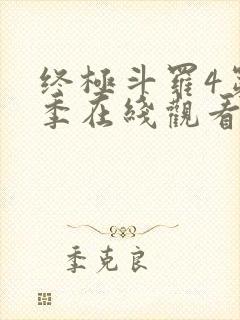 终極斗羅4第
季在綫觀看
季克良